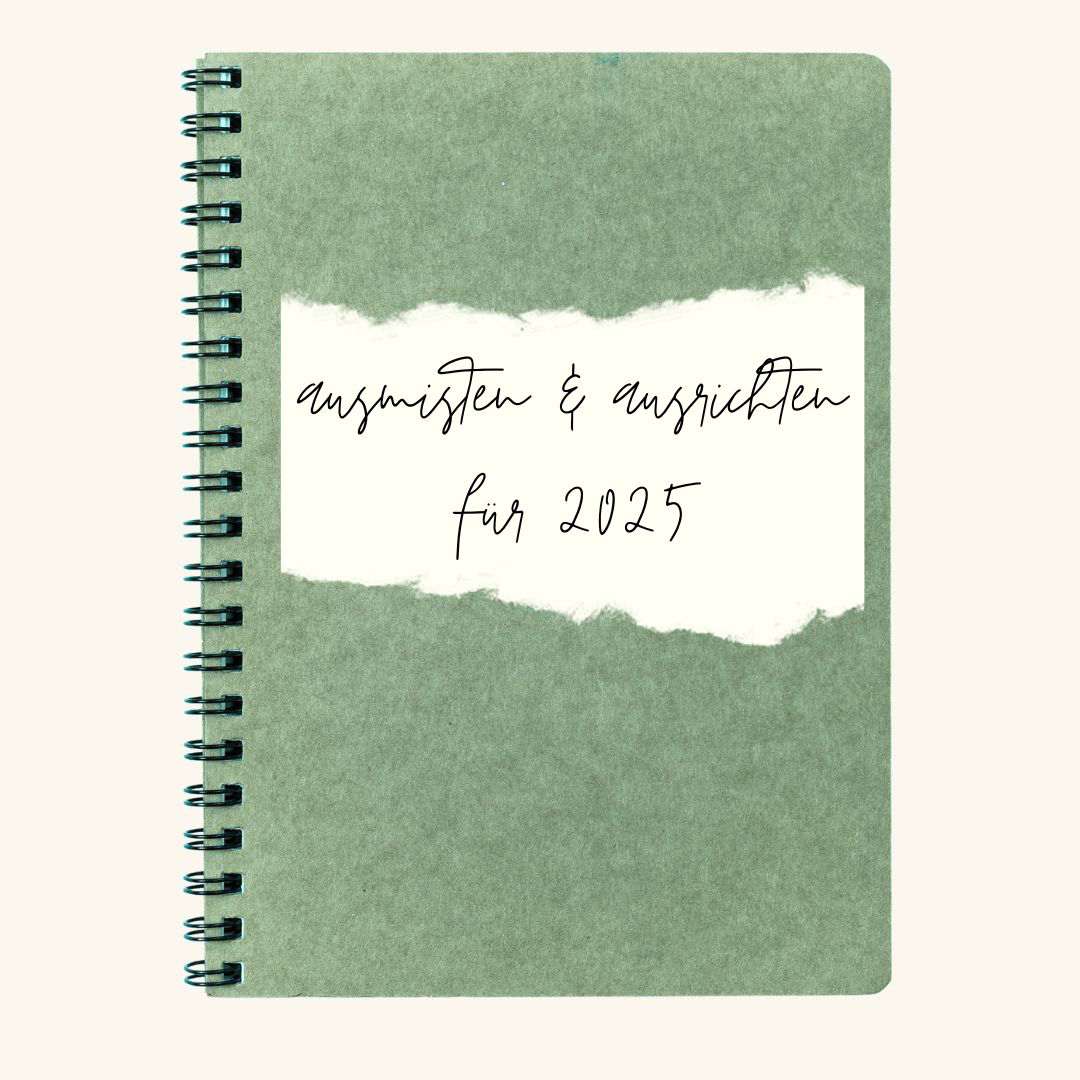 ausmisten & ausrichten
für 2025